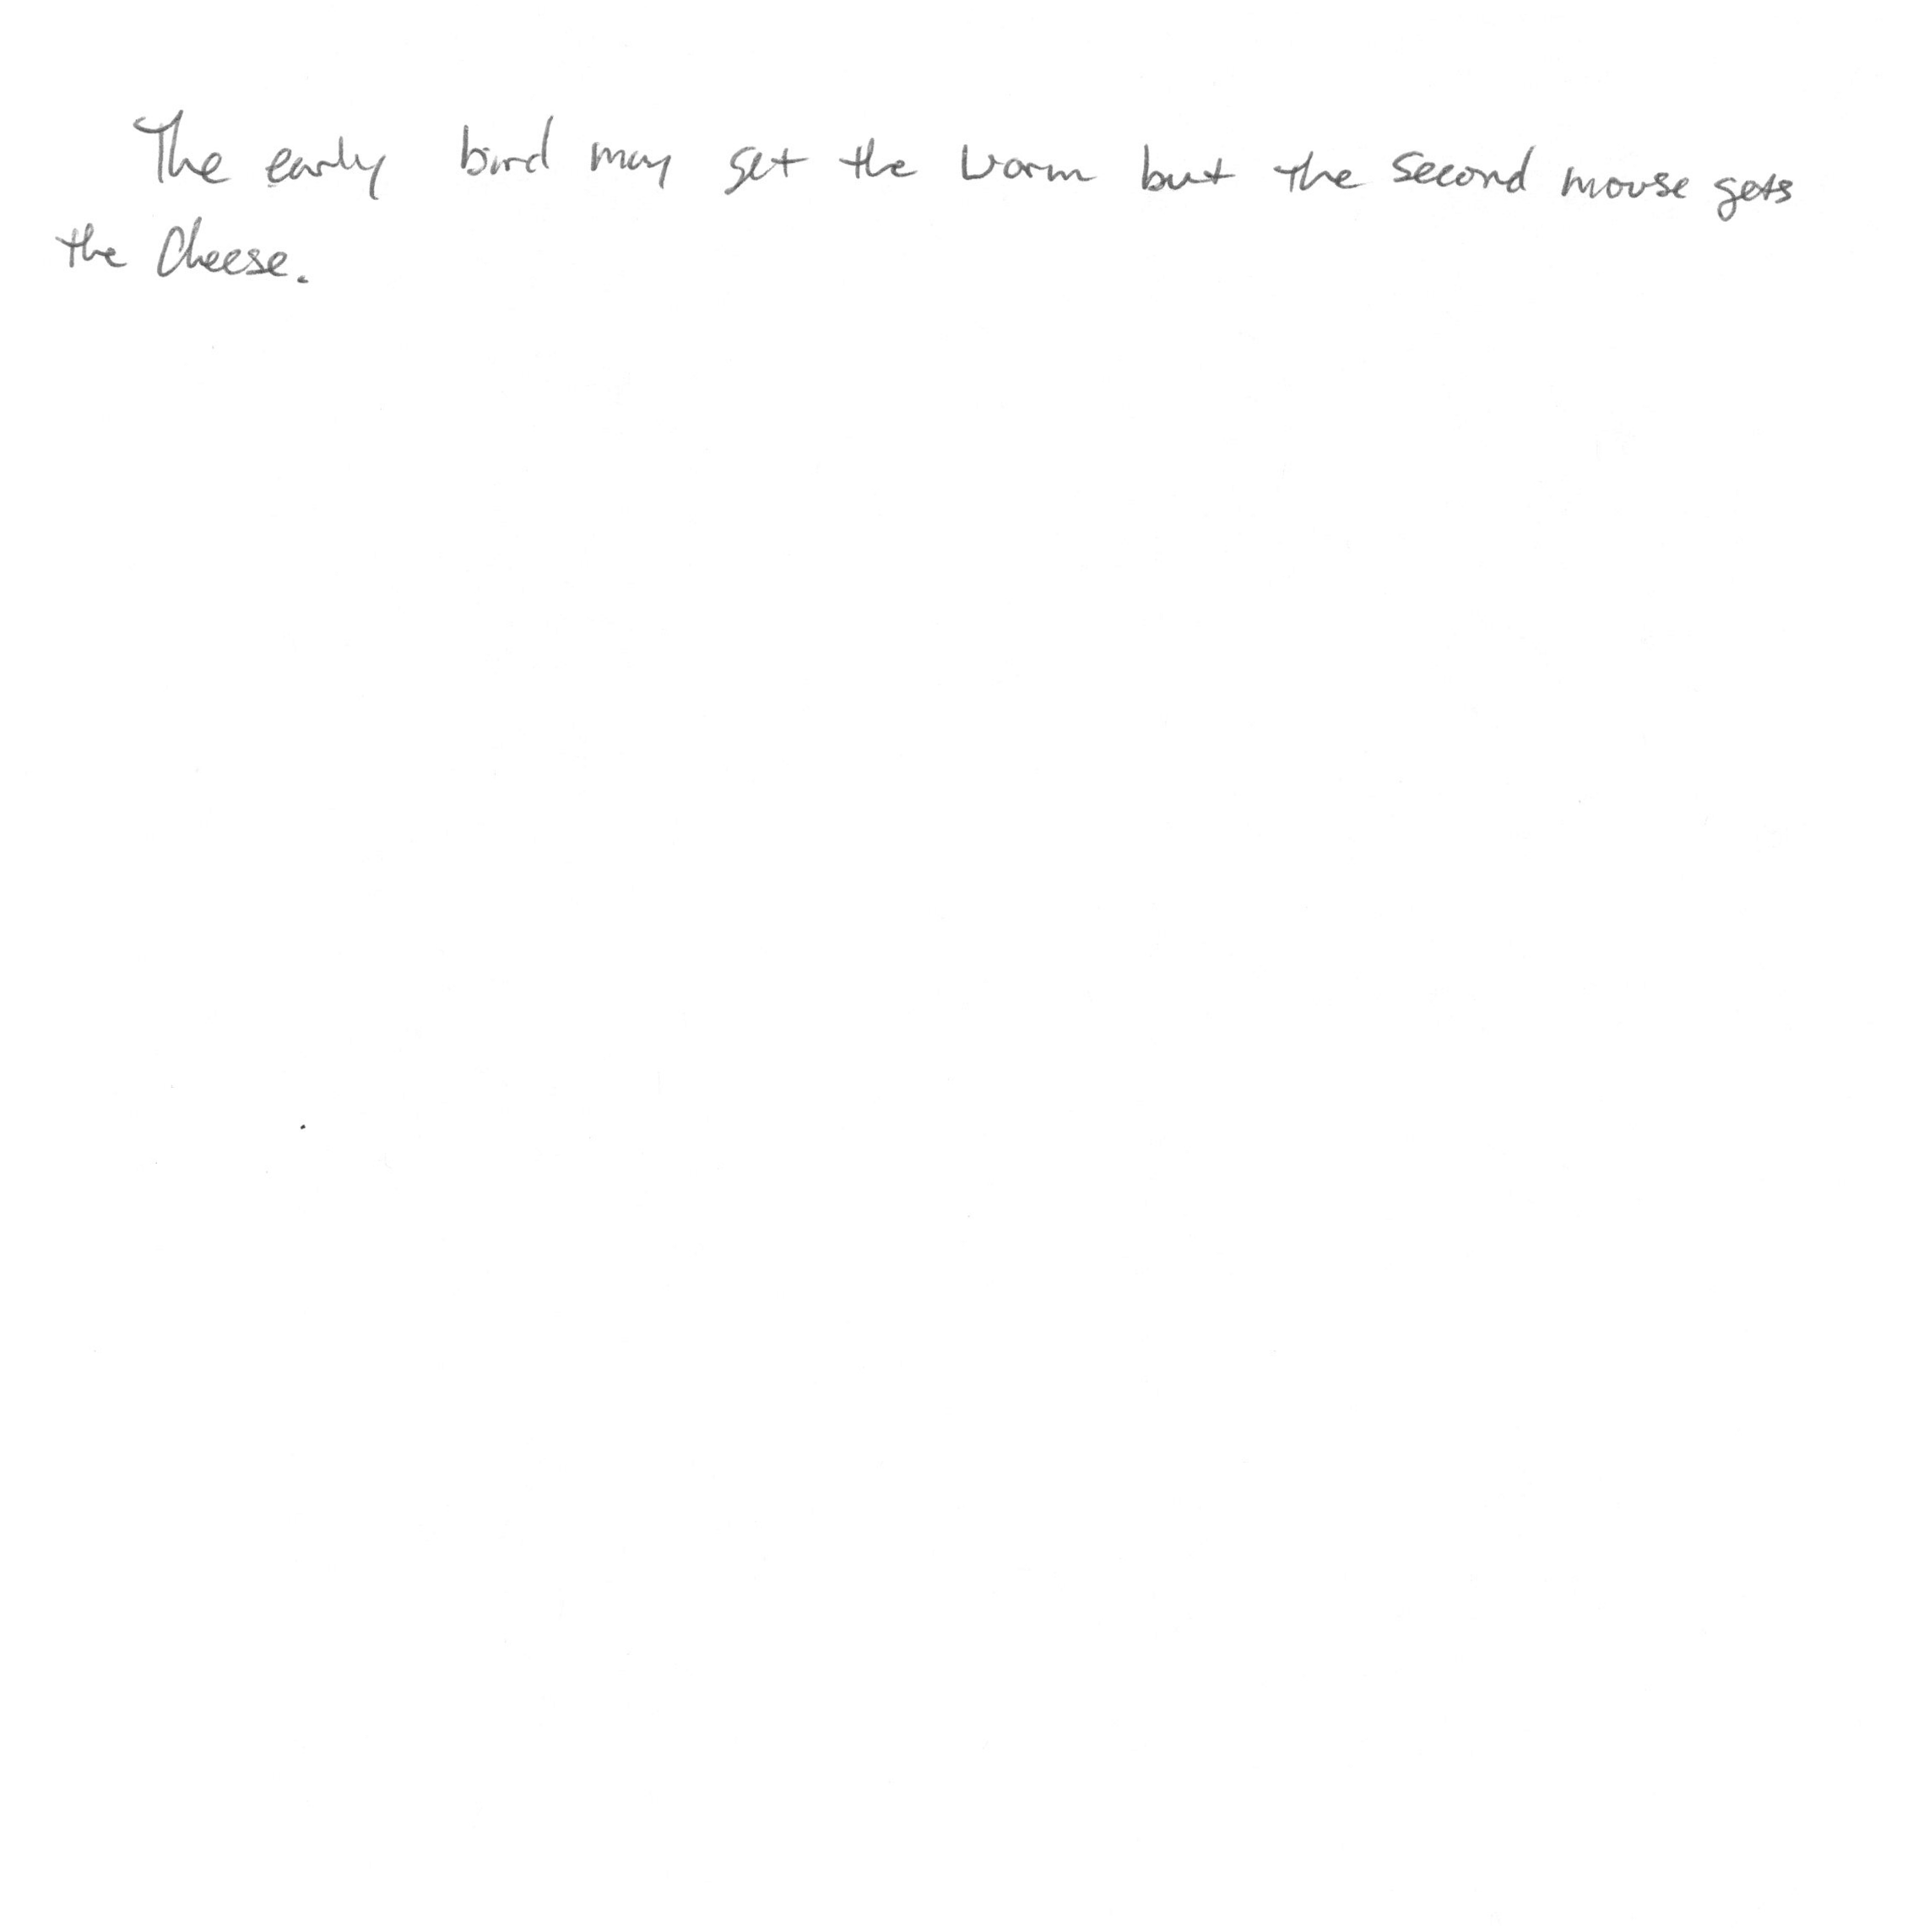 The early bird may get the worm but the second mouse gets
the Cheese.